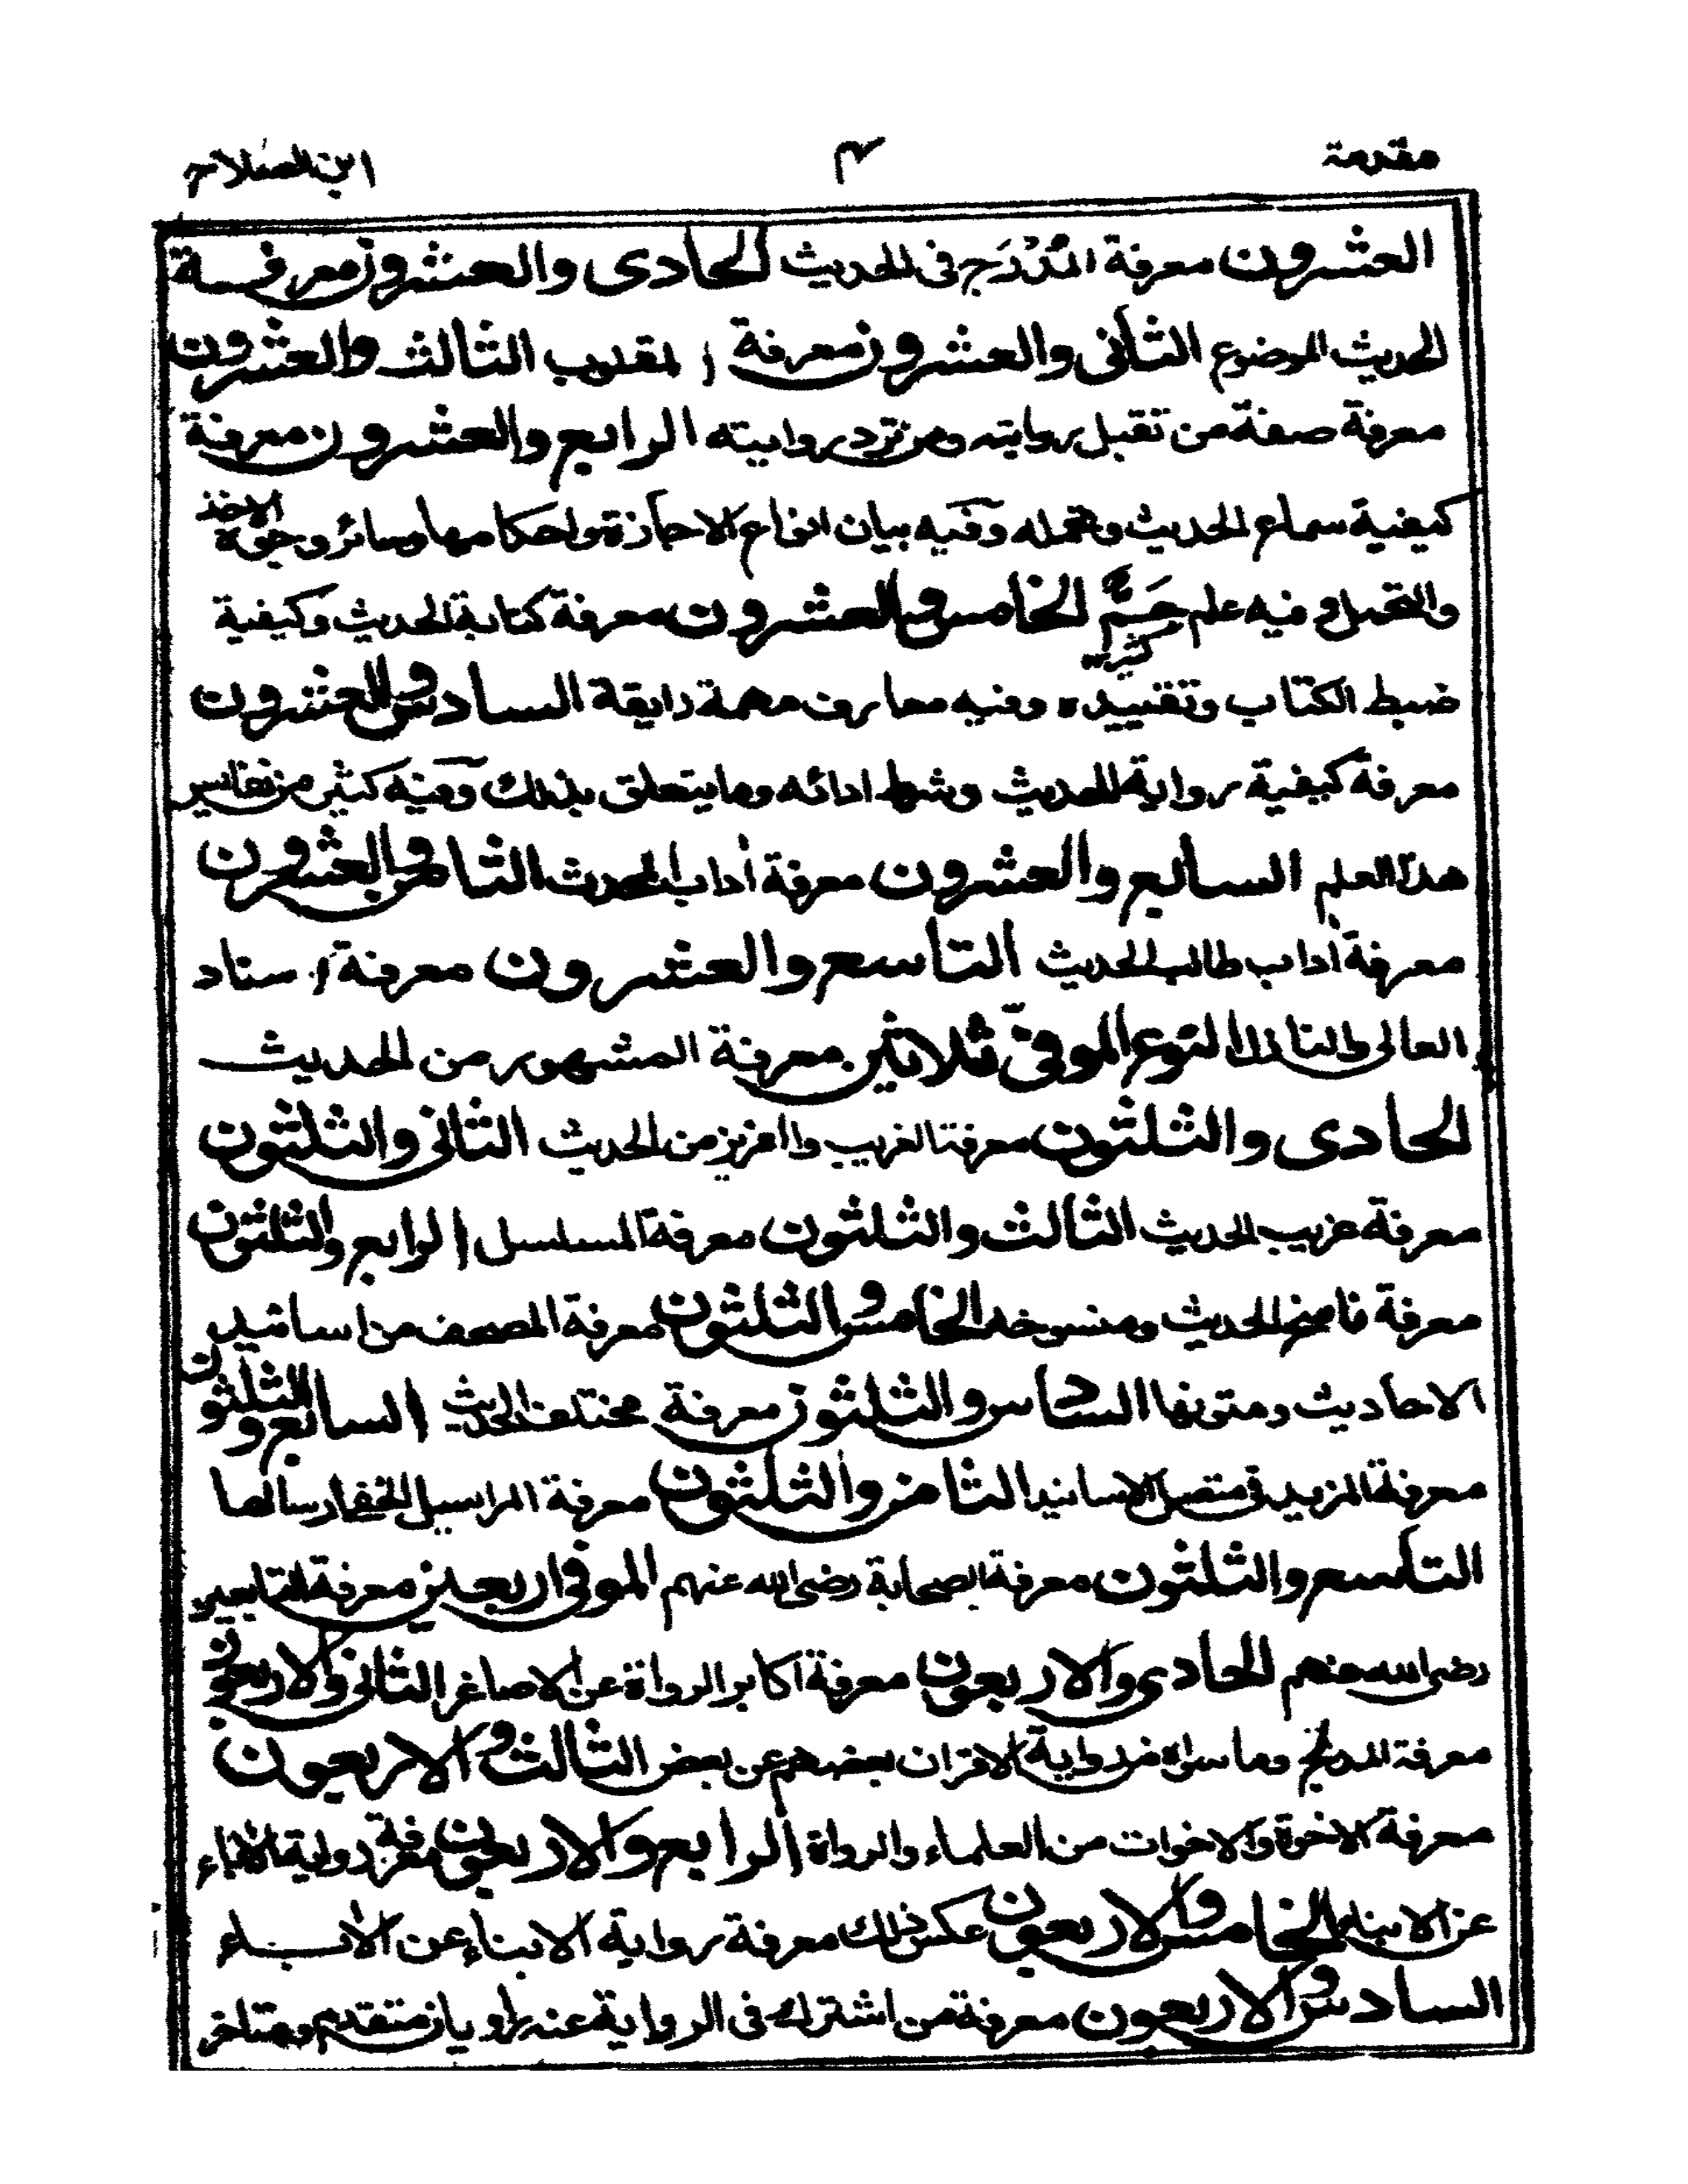 مقدمة ٣ ابن الصلاح
العشرون معرفة المُدْرَج فى الحديث الحادى والعشرون معرفة
الحديث الموضوع الثانى والعشرون معرفة المقلوب الثالث والعشرون
معرفة صفة من تقبل روايته ومن ترد روايته الرابع والعشرون معرفة
كيفية سماع الحديث وتحمله وفيه بيان انواع الاجازة واحكامها وسائر وجوه الاخذ
والتحمل وفيه علم جَمٌّ الخامس والعشرون معرفة كتابة الحديث وكيفية
كثير
ضبط الكتاب وتقييده وفيه معارف مهمة رايقة السادس والعشرون
معرفة كيفية رواية الحديث وشرط ادائه وما يتعلق بذلك وفيه كثير من نفايس
هذا العلم السابع والعشرون معرفة اداب المحدث الثامن والعشرون
معرفة اداب طالب الحديث التاسع والعشرون معرفة الاسناد
العالى والنازل النوع الموفى ثلاثين معرفة المشهور من الحديث
الحادى والثلثون معرفة الغريب والعزيز من الحديث الثانى والثلثون
معرفة غريب الحديث الثالث والثلثون معرفة المسلسل الرابع والثلثون
معرفة ناسخ الحديث ومنسوخه الخامس والثلثون معرفة المصحف من اسانيد
الاحاديث ومتونها السادس والثلثون معرفة مختلف الحديث السابع والثلثون
معرفة المزيد فى متصل الاسانيد الثامن والثلثون معرفة المراسيل الخفى ارسالها
التاسع والثلثون معرفة الصحابة رضى الله عنهم الموفى اربعين معرفة التابعين
رضى الله عنهم الحادى والاربعون معرفة اكابر الرواة عن الاصاغر الثانى والاربعون
معرفة المدبج وما سواه من رواية الاقران بعضهم عن بعض الثالث والاربعون
معرفة الاخوة والاخوات من العلماء والرواة الرابع والاربعون معرفة رواية الاباء
عن الابناء الخامس والاربعون عكس ذلك معرفة رواية الابناء عن الاباء
السادس والاربعون معرفة من اشترك فى الرواية عنه راويان متقدم ومتاخر